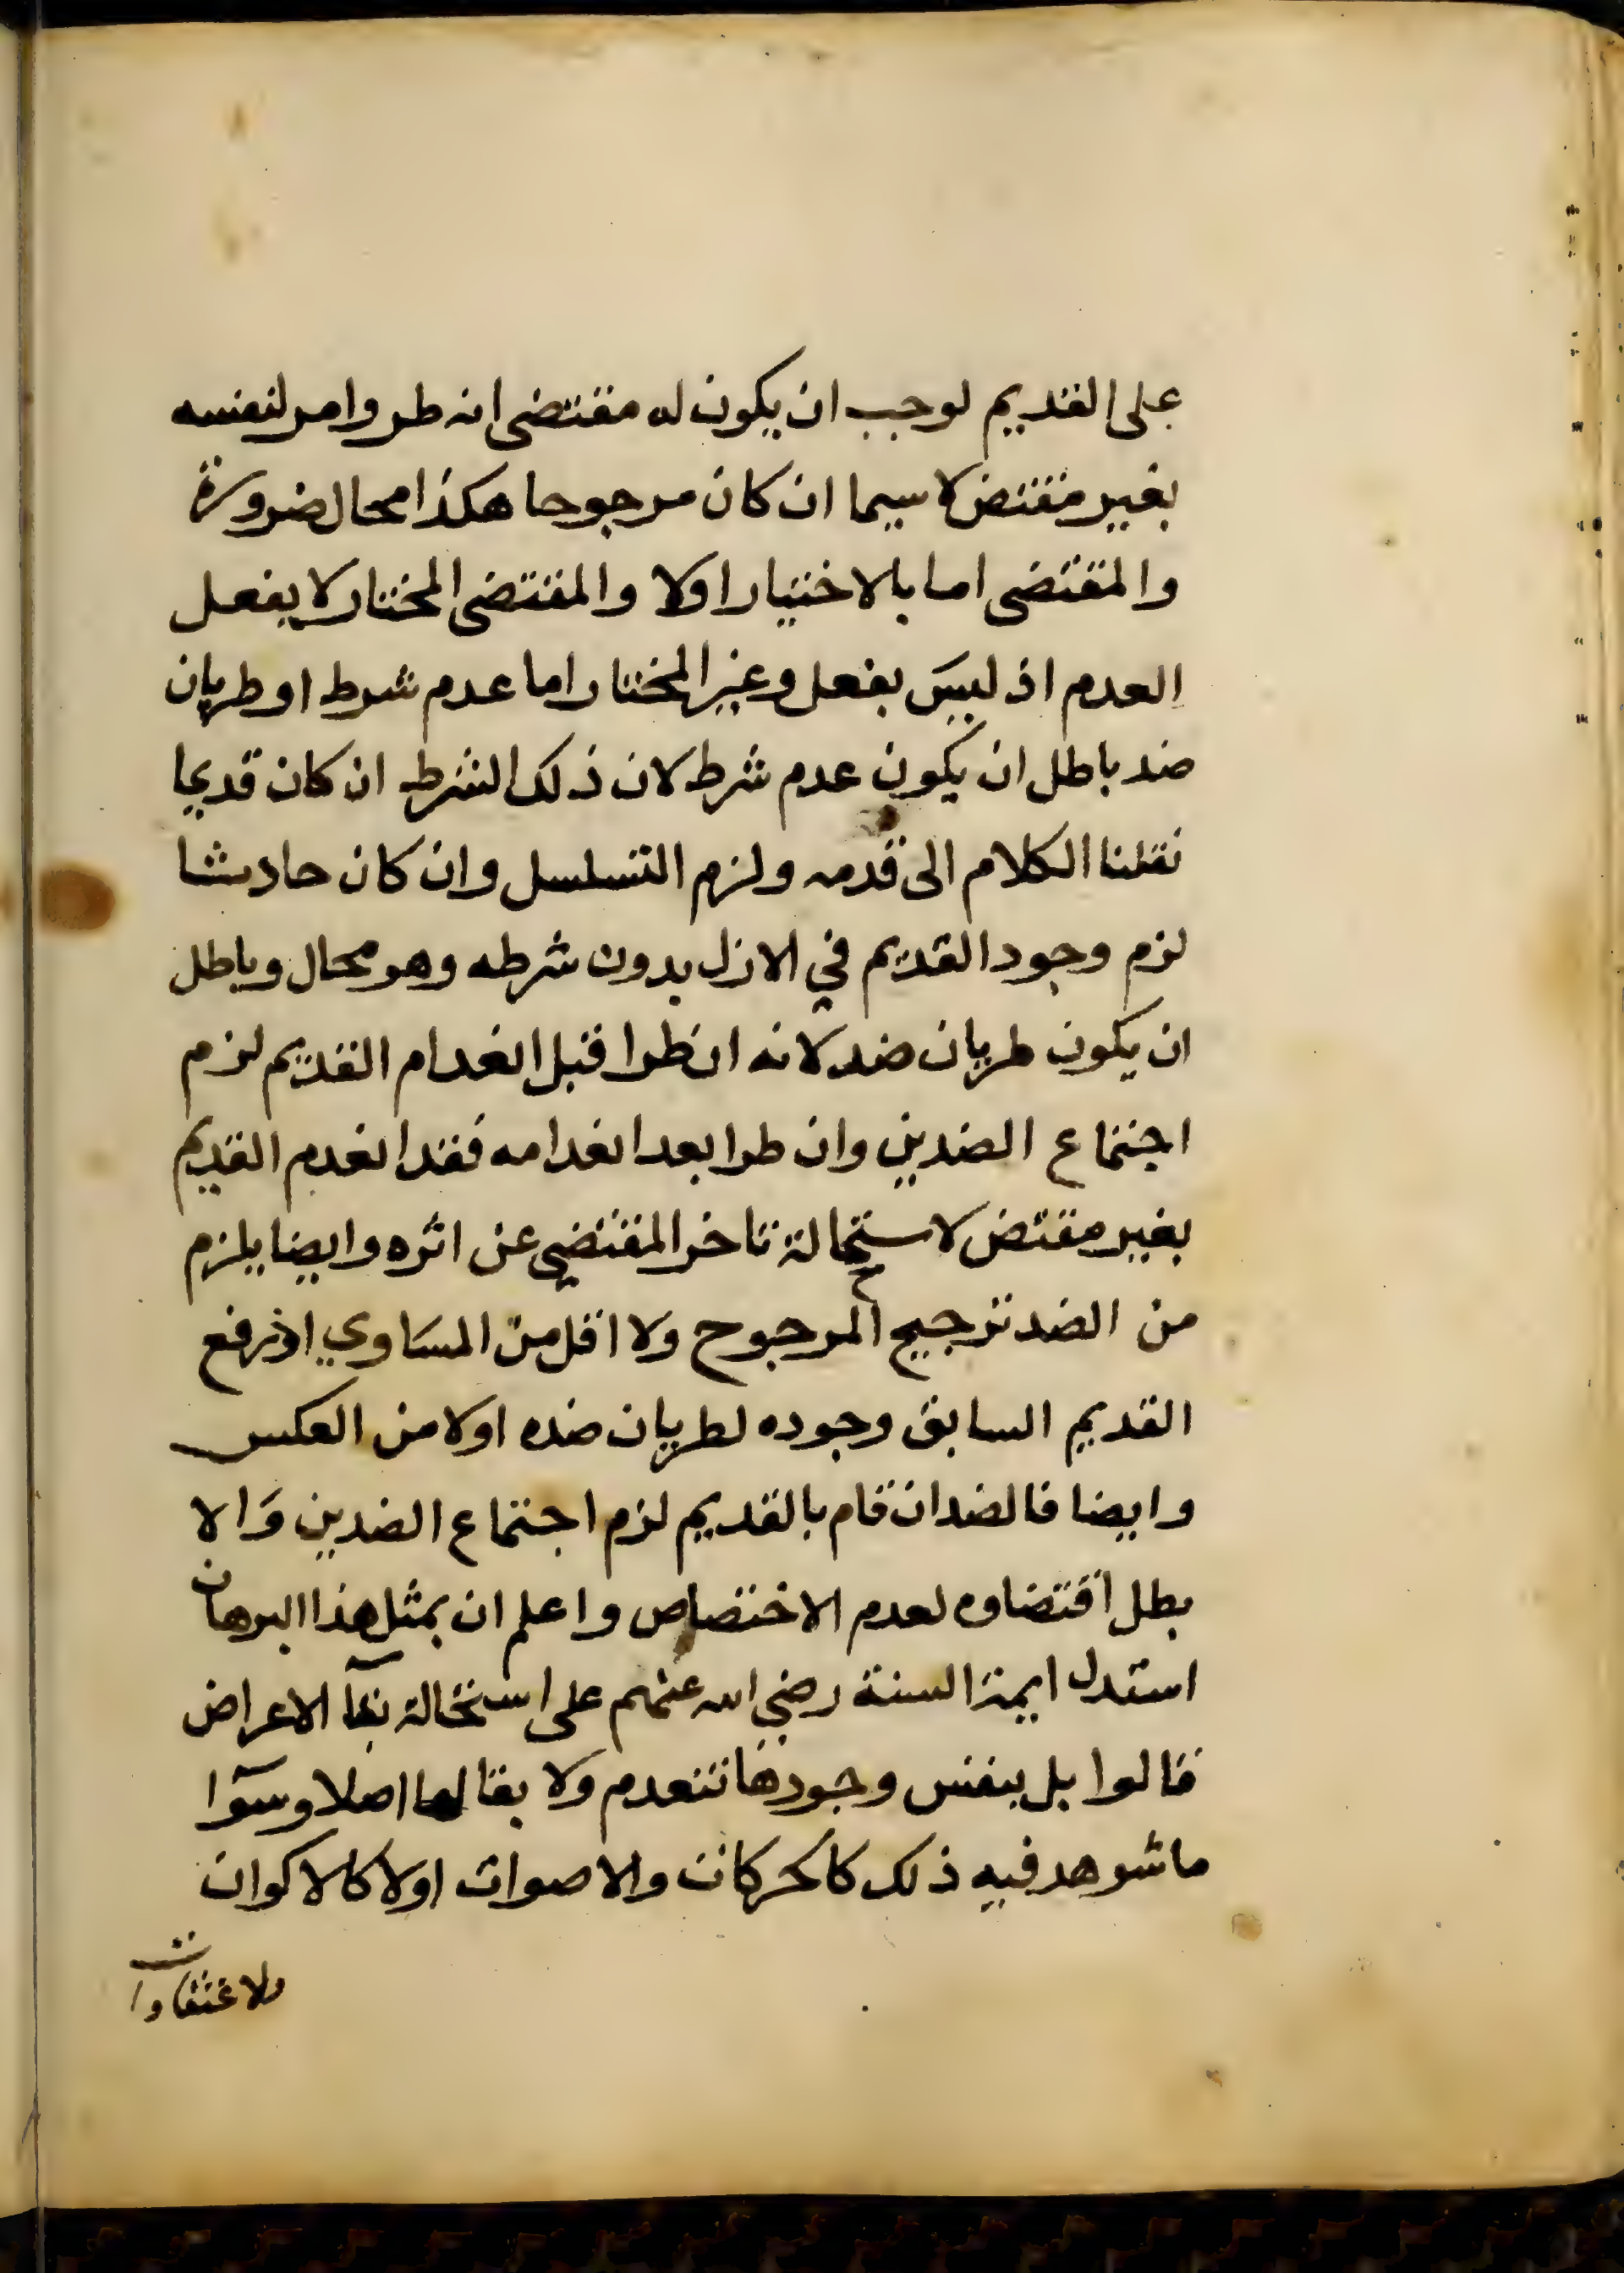 على القديم لوجب ان يكون له مقتضى انه طرو امر لنفسه
بغير مقتض لا سيما ان كان مرجوحا هكذا محال ضرورة
والمقتضى اما بالاختيار اولا والمقتضى المختار لا يفعل
العدم اذ ليس بفعل وغير المختار اما عدم شرط او طريان
ضد باطل ان يكون عدم شرط لان ذلك الشرط ان كان قديما
نقلنا الكلام الى قدمه ولزم التسلسل وان كان حادثا
لزم وجود القديم في الازل بدون شرطه وهو محال وباطل
ان يكون طريان ضد لانه ان طرا قبل انعدام القديم لزم
اجتماع الضدين وان طرا بعد انعدامه فقد انعدم القديم
بغير مقتض لاستحالة تاخر المقتضي عن اثره وايضا يلزم
من الضد ترجيح المرجوح ولا اقل من المساوي اذ رفع
القديم السابق وجوده لطريان ضده اولا من العكس
وايضا فالضد ان قام بالقديم لزم اجتماع الضدين والا
بطل اقتضاوه لعدم الاختصاص واعلم ان بمثل هذا البرهان
استدل ايمة السنة رضي الله عنهم على استحالة بقآ الاعراض
قالوا بل بنفس وجودها تنعدم ولا بقا لها اصلا وسوآ
ما شوهد فيه ذلك كالحركات والاصوات اولا كالاكوان
والاعتقادات